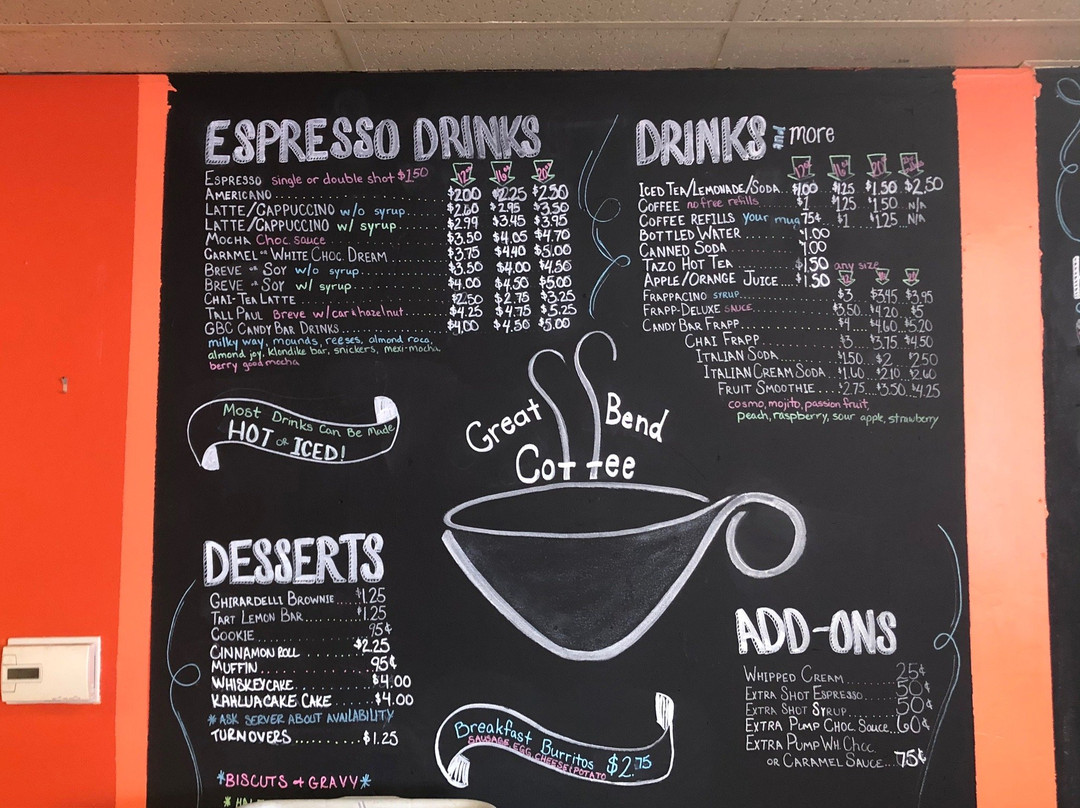 ESPRESSO DRINKS
12oz 16oz 20oz
ESPRESSO single or double shot $1.50
AMERICANO $2.00 $2.25 $2.50
LATTE/CAPPUCCINO w/o syrup $2.60 $2.95 $3.50
LATTE/CAPPUCCINO w/ syrup $2.99 $3.45 $3.95
MOCHA Choc. sauce $3.50 $4.05 $4.70
CARAMEL OR WHITE CHOC. DREAM $3.75 $4.40 $5.00
BREVE OR SOY w/o syrup $3.50 $4.00 $4.50
BREVE OR SOY w/ syrup $4.00 $4.50 $5.00
CHAI-TEA LATTE $2.50 $2.75 $3.25
TALL PAUL Breve w/car+hazelnut $4.25 $4.75 $5.25
GBC CANDY BAR DRINKS $4.00 $4.50 $5.00
milky way, mounds, reeses, almond roca,
almond joy, klondike bar, snickers, mexi-mocha
berry good mocha
MOST Drinks Can Be Made
HOT OR ICED!
DRINKS and more
12oz 16oz
ICED TEA/LEMONADE/SODA $1.00 $1.25 $1.50 $2.50
COFFEE no free refills $1 $1.25 $1.50 N/A
COFFEE REFILLS your mug 75¢ $1 $1.25 N/A
BOTTLED WATER 1.00
CANNED SODA 1.00
TAZO HOT TEA $1.50 any size
APPLE/ORANGE JUICE $1.50
FRAPPACINO SYRUP $3 $3.45 $3.95
FRAPP-DELUXE SAUCE $3.50 $4.20 $5
CANDY BAR FRAPP $4 $4.60 $5.20
CHAI FRAPP $3 $3.75 $4.50
ITALIAN SODA $1.50 $2 $2.50
ITALIAN CREAM SODA $1.60 $2.10 $2.60
FRUIT SMOOTHIE $2.75 $3.50 $4.25
cosmo, mojito, passion fruit,
peach, raspberry, sour apple, strawberry
Great Bend
Coffee
DESSERTS
GHIRARDELLI BROWNIE $1.25
TART LEMON BAR $1.25
COOKIE 95¢
CINNAMON ROLL $2.25
MUFFIN 95¢
WHISKEY CAKE $4.00
KAHLUA CAKE CAKE $4.00
*ASK SERVER ABOUT AVAILABILITY
TURNOVERS $1.25
*BISCUTS + GRAVY*
Breakfast Burritos $2.75
SAUSAGE, EGG, CHEESE, POTATO
ADD-ONS
WHIPPED CREAM 25¢
EXTRA SHOT ESPRESSO 50¢
EXTRA SHOT SYRUP 50¢
EXTRA PUMP CHOC SAUCE 60¢
EXTRA PUMP WH CHOC
OR CARAMEL SAUCE 75¢